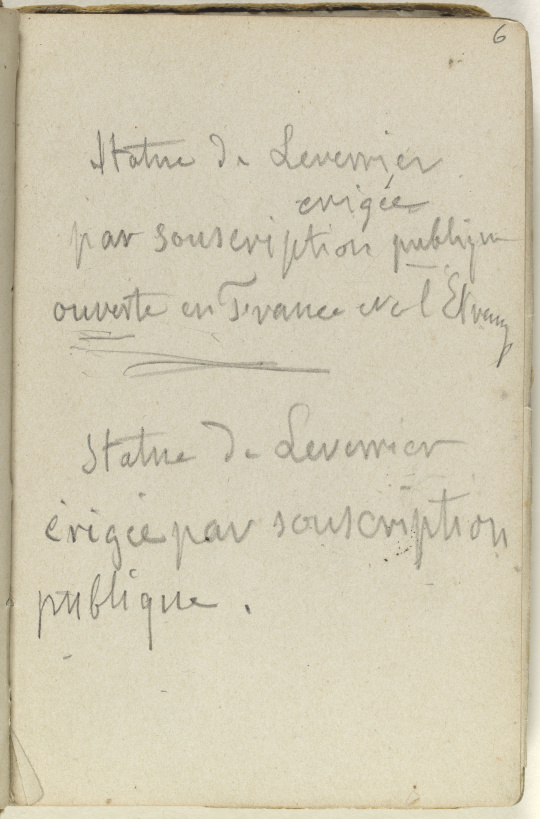 6
Statue de Leverrier
erigée
par souscription publique
ouverte en France et a l'Etrang
Statue de Leverrier
érigée par souscription
publique.